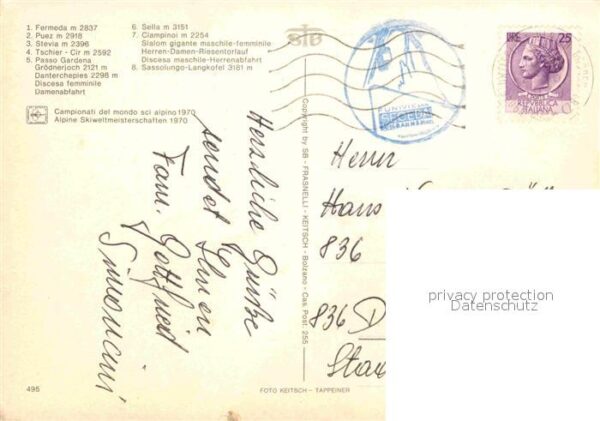 1. Fermeda m 2837
2. Puez m 2918
3. Stevia m 2396
4. Tschier - Cir m 2592
5. Passo Gardena
Grödnerjoch 2121 m
Danterchepies 2298 m
Discesa femminile
Damenabfahrt
6. Sella m 3151
7. Ciampinoi m 2254
Slalom gigante maschile-femminile
Herren-Damen-Riesentorlauf
Discesa maschile-Herrenabfahrt
8. Sassolungo-Langkofel 3181 m
Campionati del mondo sci alpino 1970
Alpine Skiweltmeisterschaften 1970
Herzliche Grüße
sendet Ihnen
Fam. Gottfried
Copyright by SB - FRASNELLI - KEITSCH - Bolzano - Cas. Post. 255
FUNIVIE
LIRE 25
REPUBBLICA
ITALIANA
Herrn
Hans
836
836 D
privacy protection
Datenschutz
495
FOTO KEITSCH - TAPPEINER